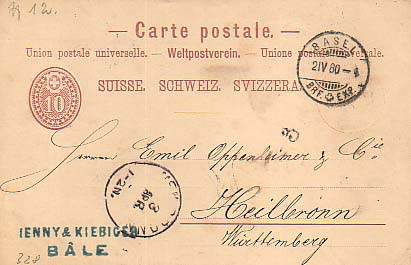 Carte postale.
Union postale universelle. — Weltpostverein. — Unione postale universale.
SUISSE. SCHWEIZ. SVIZZERA.
10
BASEL
2 IV 80 – 4
BRF. EXP.
Herren Emil Oppenheimer & Cie
Heilbronn
Württemberg
3
APR.
1-2N.
JENNY & KIEBIGER
BÂLE
328